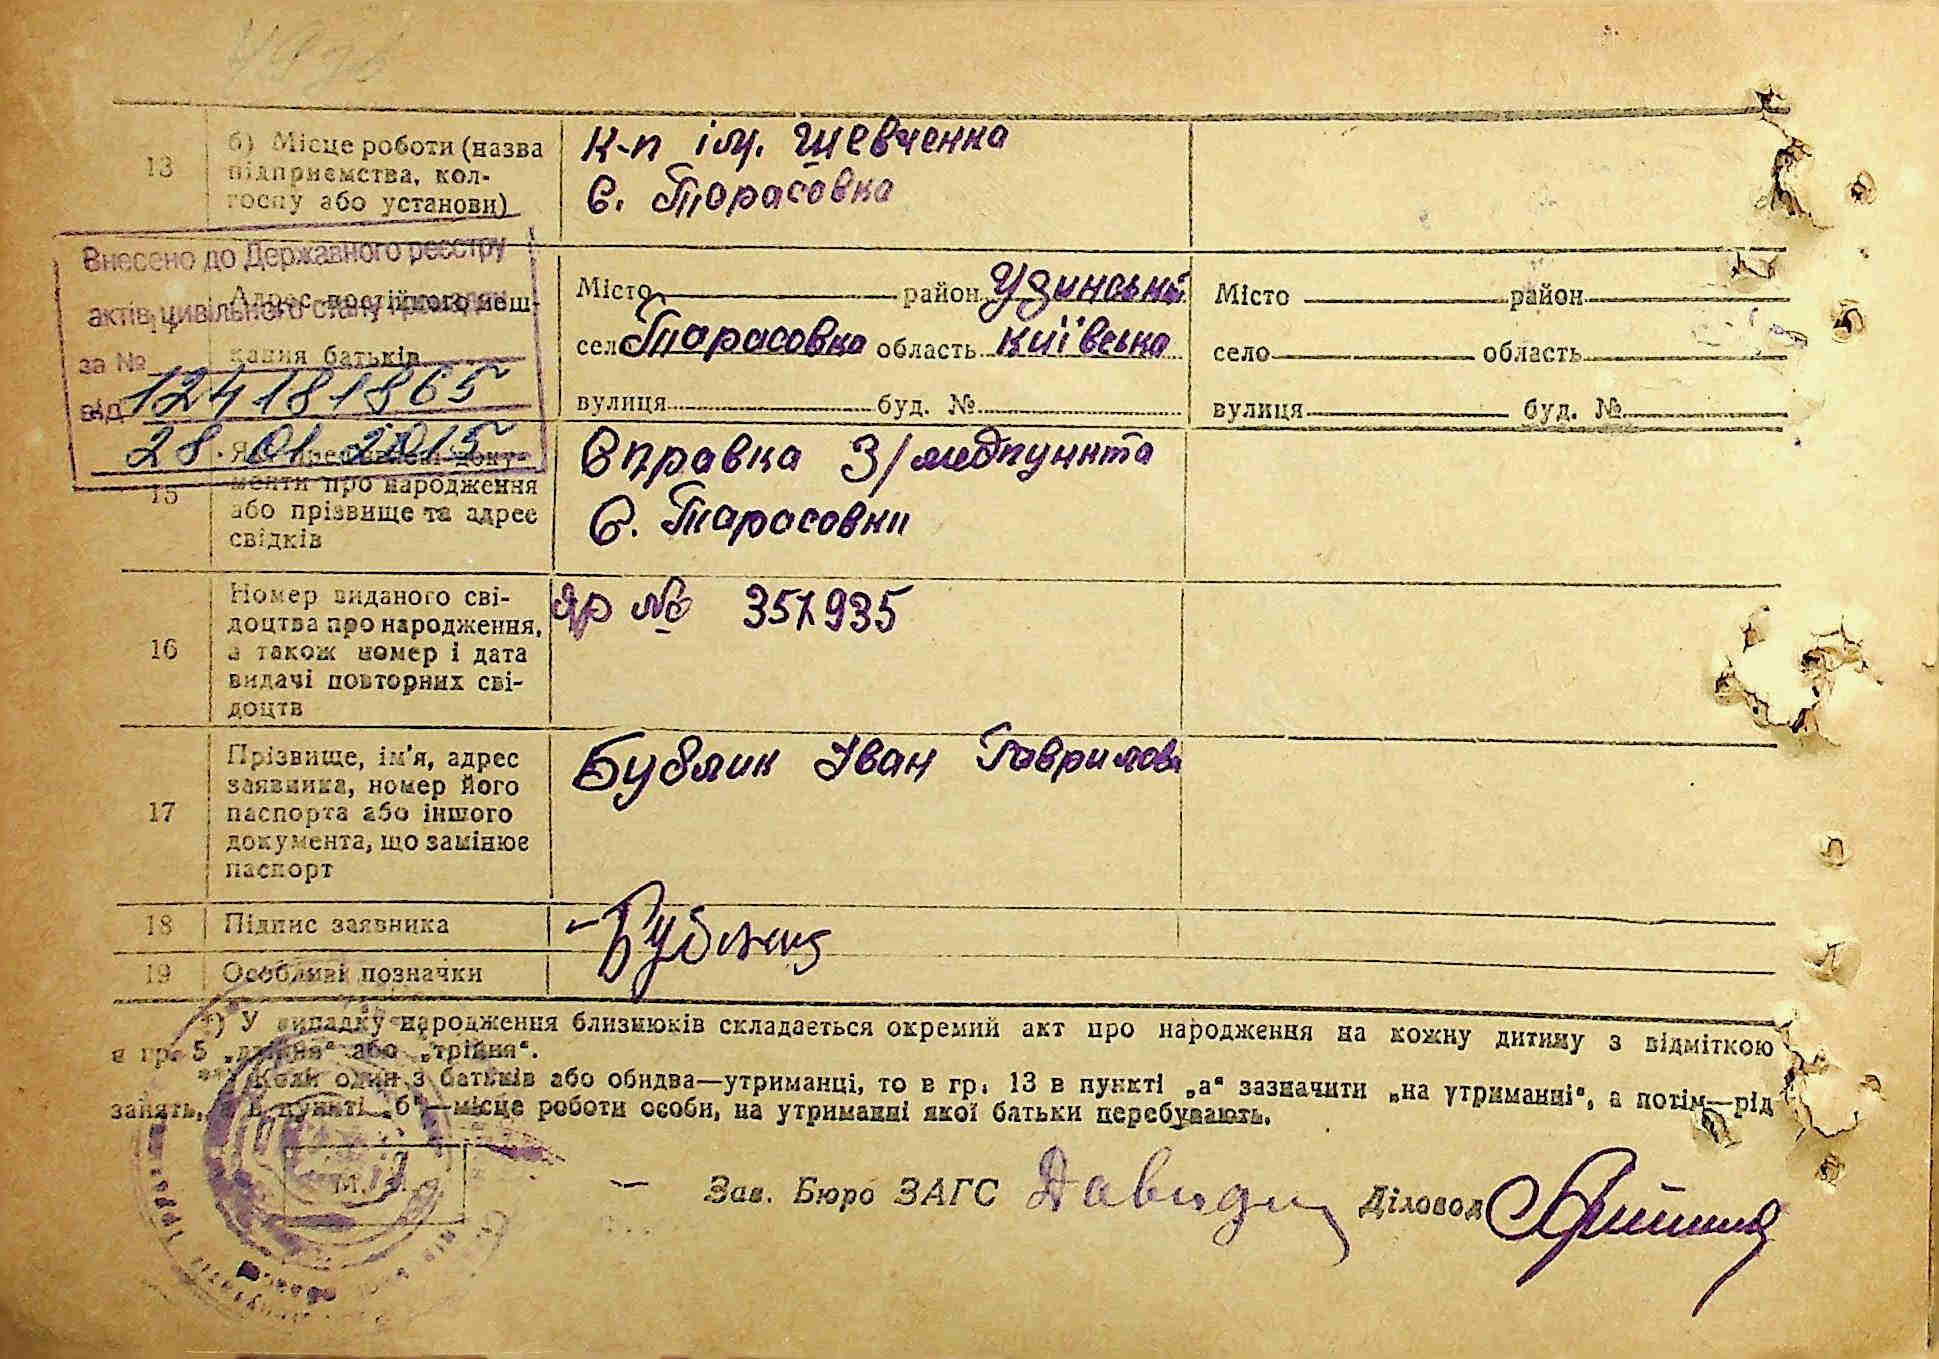 13
б) Місце роботи (назва
підприємства, кол-
госпу або установи)
К-п ім. Шевченка
с. Тарасовка
Внесено до Державного реєстру
актів цивільного стану громадян
за № 124181865
від 28.01.2015
Адрес постійного меш-
кання батьків
Місто район Узинський
село Тарасовка область Київська
вулиця буд. №
Місто район
село область
вулиця буд. №
15
Які пред'явлені доку-
менти про народження
або прізвище та адрес
свідків
Справка З/медпункта
с. Тарасовки
16
Номер виданого сві-
доцтва про народження,
а також номер і дата
видачі повторних сві-
доцтв
№ 357935
17
Прізвище, ім'я, адрес
заявника, номер його
паспорта або іншого
документа, що замінює
паспорт
Бублик Іван Гаврилов
18
Підпис заявника
Бублик
19
Особливі позначки
*) У випадку народження близнюків складається окремий акт про народження на кожну дитину з відміткою
в гр. 5 „двійня“ або „трійня“.
**) Коли один з батьків або обидва—утриманці, то в гр. 13 в пункті „а“ зазначити „на утриманні“, а потім—рід
занять, а в пункті „б“—місце роботи особи, на утриманні якої батьки перебувають.
М.
Зав. Бюро ЗАГС
Діловод